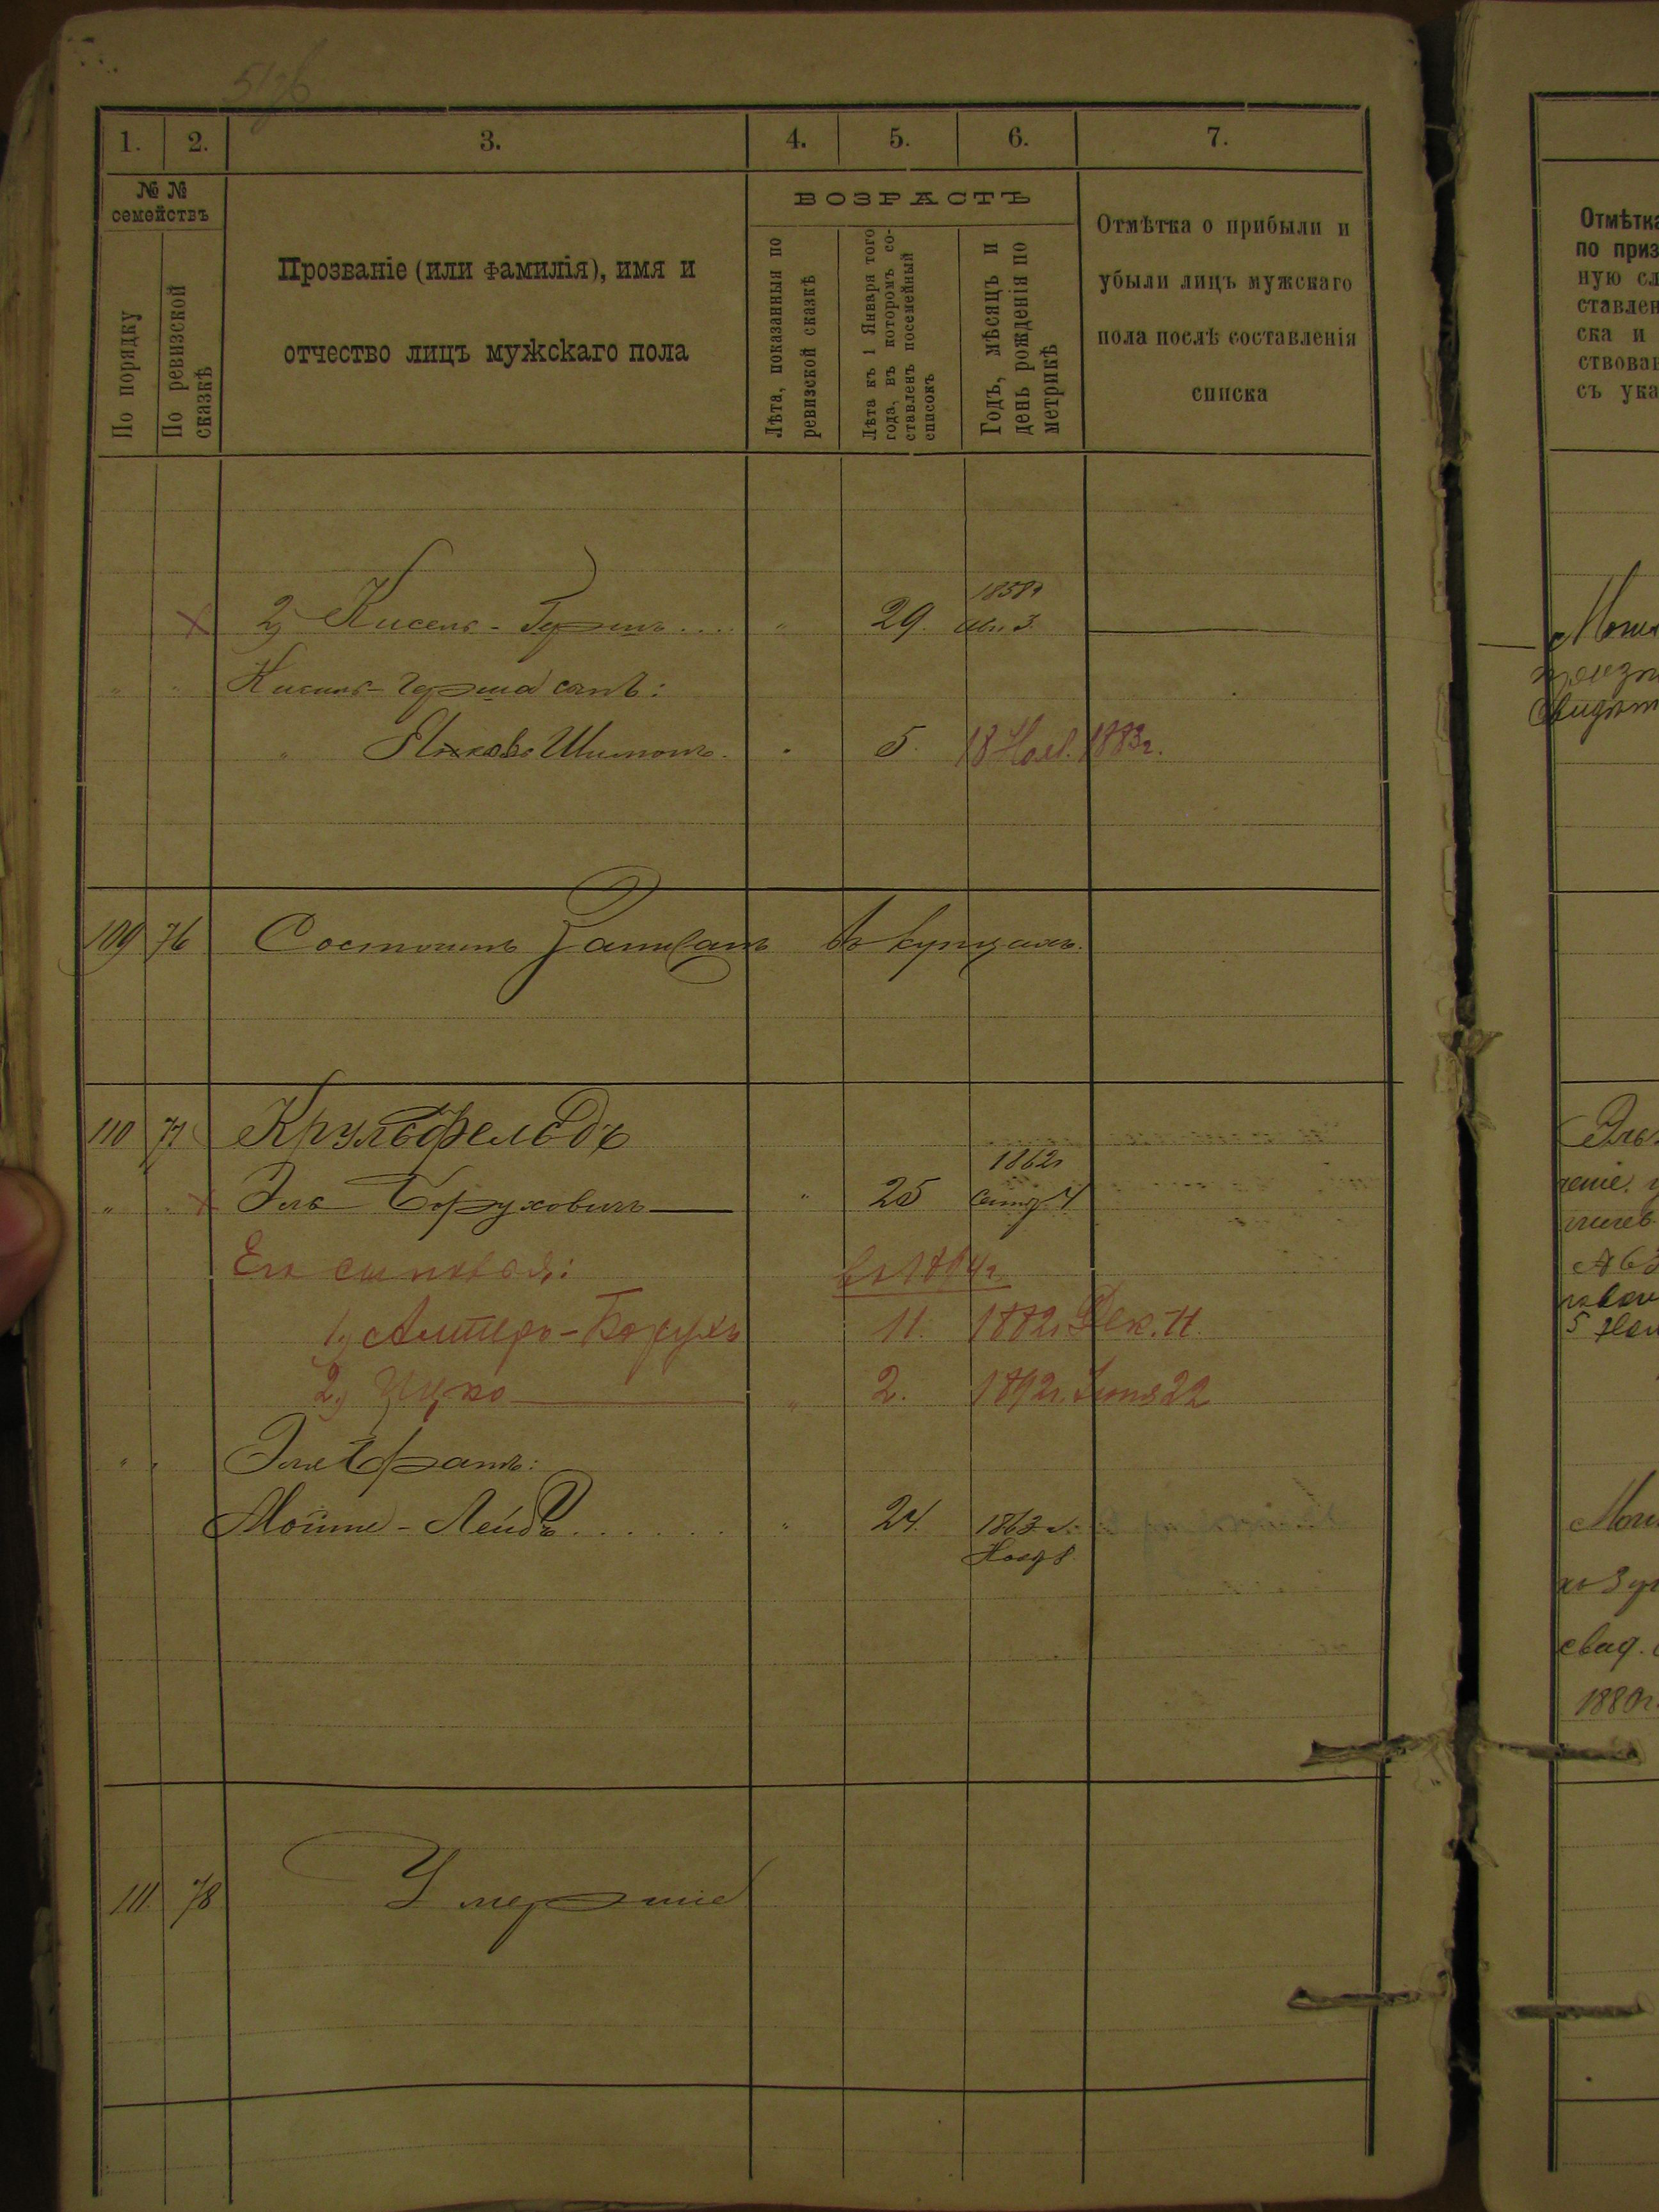 1. 2. 3. 4. 5. 6. 7.
№ №
семействъ
По порядку
По ревизской
сказкѣ
Прозваніе (или фамилія), имя и
отчество лицъ мужскаго пола
ВОЗРАСТЪ
Лѣта, показанныя по
ревизской сказкѣ
Лѣта къ 1 Января того
года, въ которомъ со-
ставленъ посемейный
списокъ
Годъ, мѣсяцъ и
день рожденія по
метрикѣ
Отмѣтка о прибыли и
убыли лицъ мужскаго
пола послѣ составленія
списка
1858г
2) Кисель-Гершъ.... " 29. 3.
" " Кисиль-Герша сынъ:
" Янковъ Шимонъ. 5. 18 Нояб. 1883г.
109 76 Состоитъ въ купцахъ.
110 77 Крульфельдъ
1862г
" Эль Боруховичъ " 25 Сентяб. 4
Его сыновья: въ 1894г
1) Альтеръ-Борухъ 11. 1882г. Дек. 11.
2) " 2. 1892г. Іюня 22
" " Эля братъ:
Мошко-Лейбъ...... " 24. 1863 г.
Нояб 8.
111 78 Умершіе
Отмѣтка
по приз
ную сл
ставлен
ска и
ствован
съ ука
1880г.